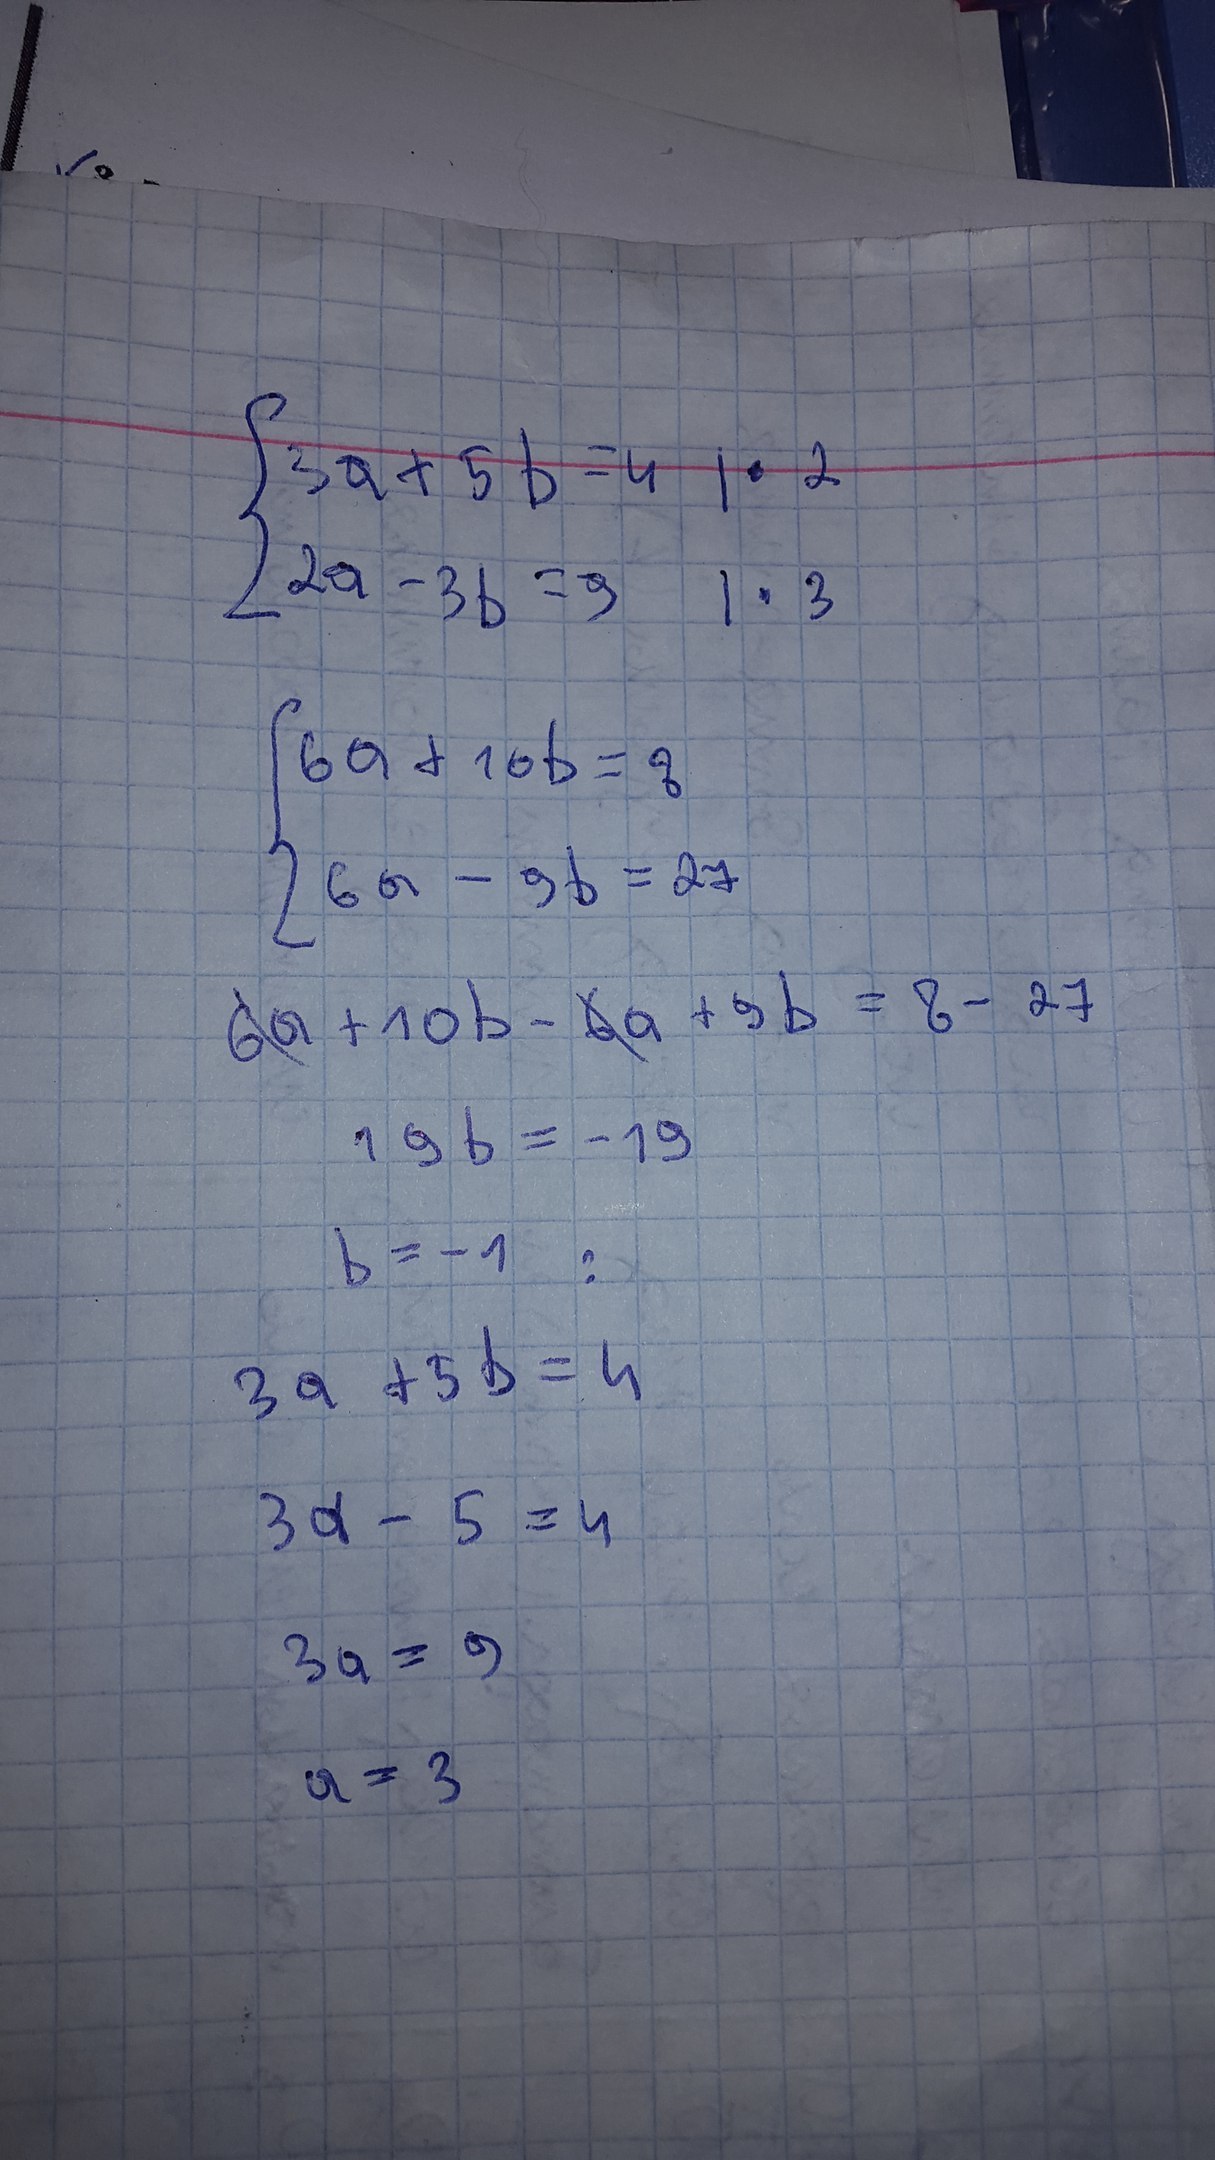 3a + 5b = 4 | · 2
2a - 3b = 9 | · 3
6a + 10b = 8
6a - 9b = 27
6a + 10b - 6a + 9b = 8 - 27
19b = -19
b = -1 :
3a + 5b = 4
3a - 5 = 4
3a = 9
a = 3